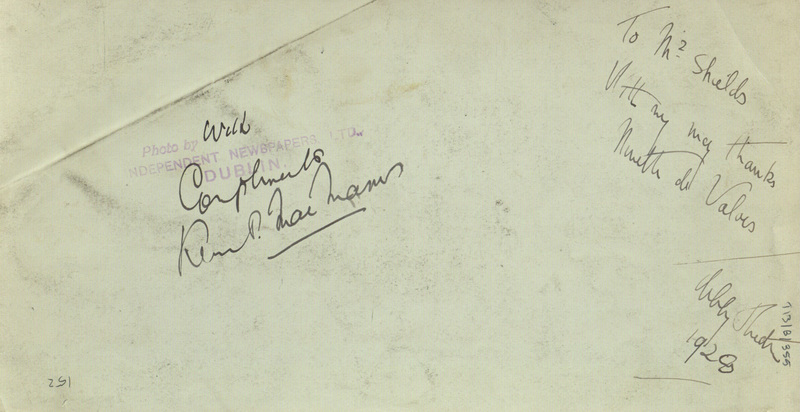 With
Photo by
INDEPENDENT NEWSPAPERS LTD.,
DUBLIN.
Compliments
P. MacManus
To Mr Shields
With my many thanks
Ninette de Valois
Abby Theatre
1928
T13/B/355
251